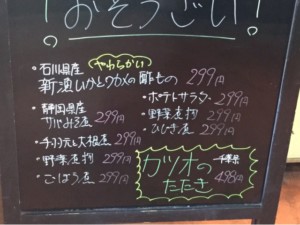 おそうざい!
石川県産 やわらかい
新漁いかとワカメの酢もの 299円
・静岡県産
299円
・ポテトサラダ 299円
・野菜煮物 299円
・ひじき煮 299円
大根煮 299円
・野菜煮物 299円
・ごぼう煮 299円
千葉県
カツオの
たたき 498円